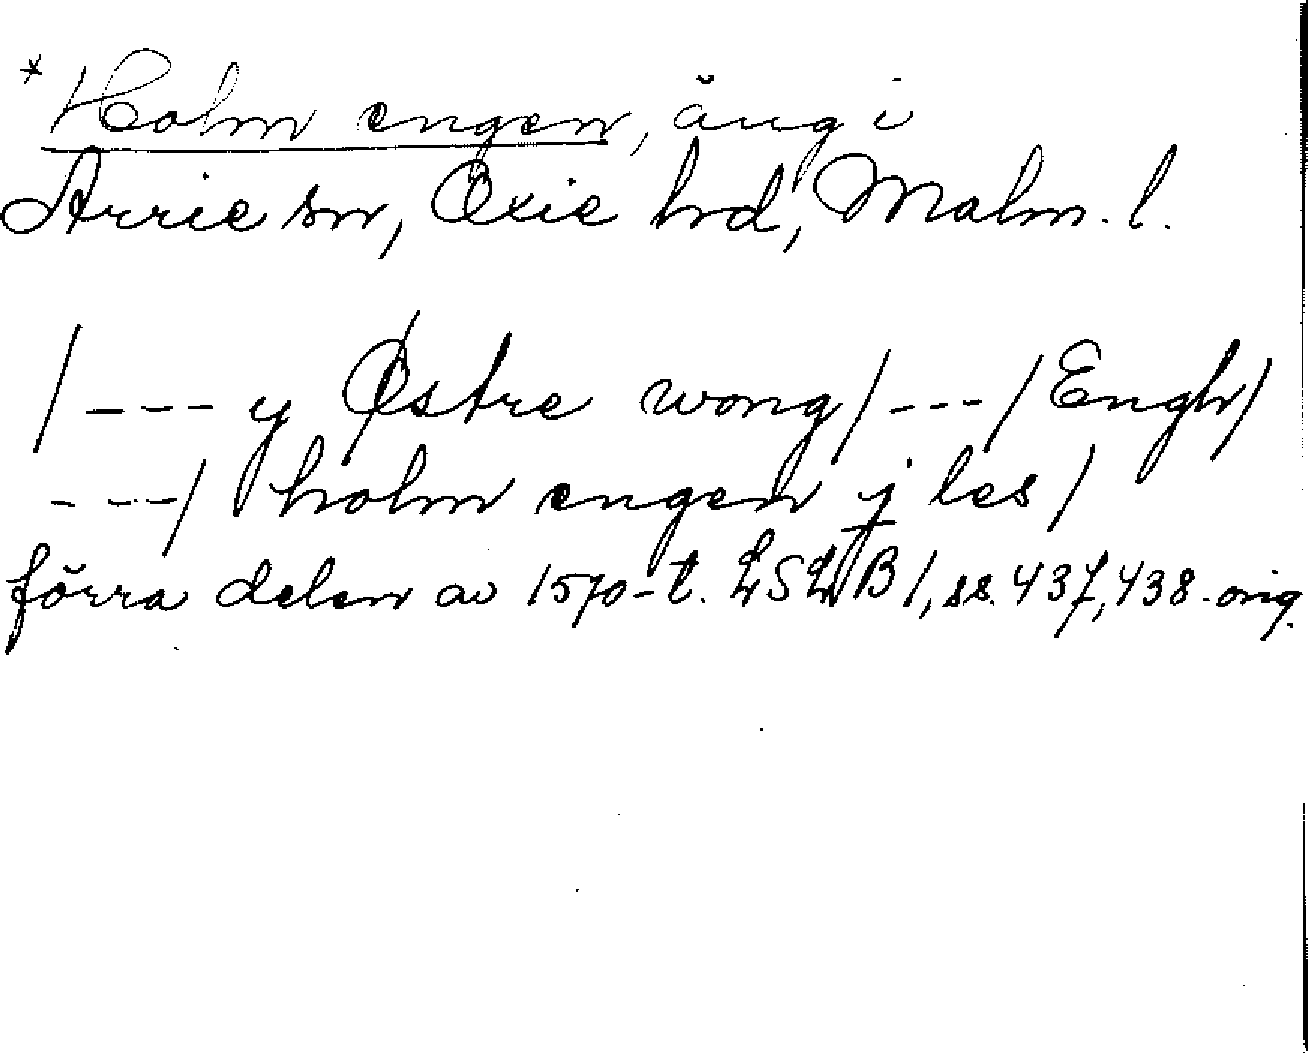 *Holm engen, äng i
Arrie sn, Oxie hd, Malm. l.
/--- y Østre wong/---/Engh/
---/ holm engen j les/
förra delen av 1570-t. LSLB 1, ss. 437, 438. orig.